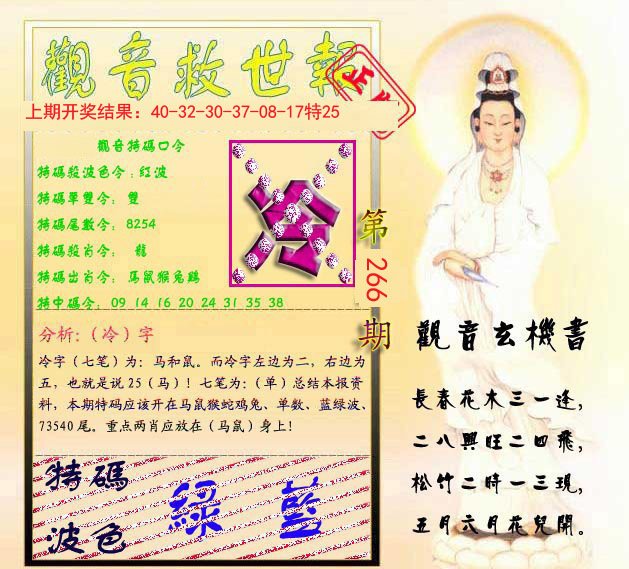 觀音救世報
正版
上期开奖结果：40-32-30-37-08-17特25
觀音特碼口令
特碼殺波色令：紅波
特碼單雙令： 雙
特碼尾數令： 8254
特碼殺肖令： 龍
特碼出肖令： 馬鼠猴兔鷄
特中碼令： 09 14 16 20 24 31 35 38
冷
第266期
分析:（冷）字
冷字（七笔）为：马和鼠。而冷字左边为二，右边为
五，也就是说 25（马）！七笔为：（单）总结本报资
料，本期特码应该开在马鼠猴蛇鸡兔、单数、蓝绿波、
73540 尾。重点两肖应放在（马鼠）身上！
特碼
波色
綠 藍
觀音玄機書
長春花木三一逢，
二八興旺二四飛，
松竹二時一三現，
五月六月花兒開。